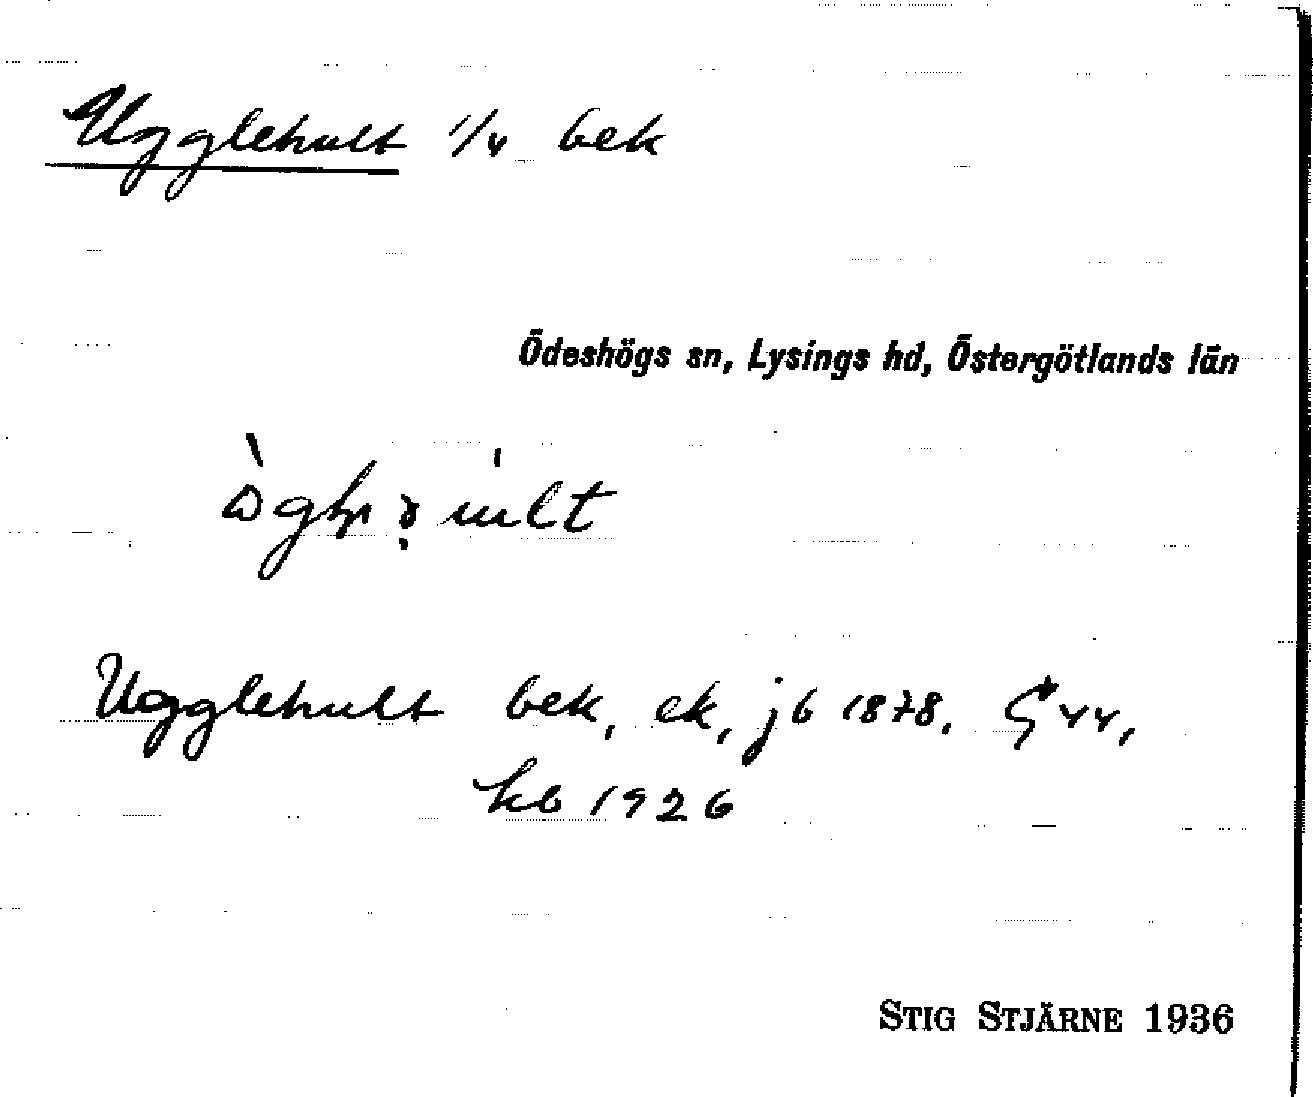 Ugglehult 1/4 bek
Ödeshögs sn, Lysings hd, Östergötlands län
Ugglehult bek, ek, jb 1878, G 44,
kb 1926
STIG STJÄRNE 1936